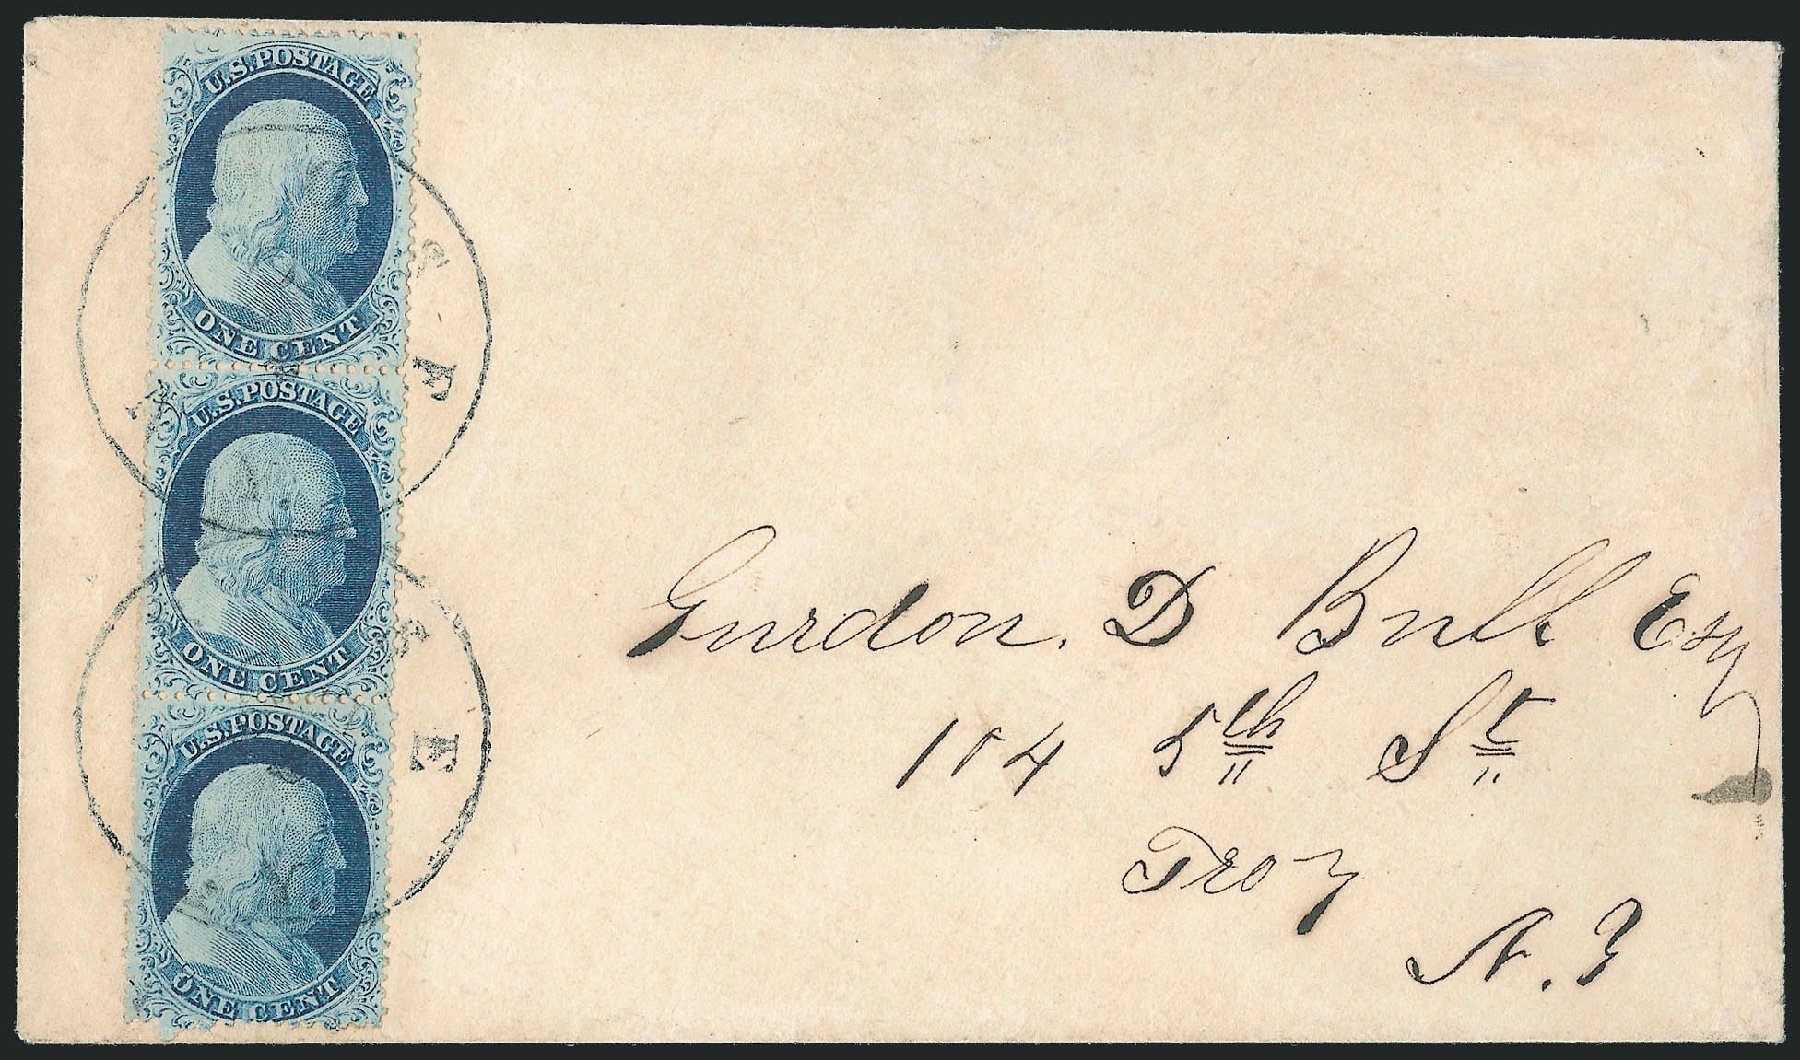 U.S. POSTAGE
ONE CENT
U.S. POSTAGE
ONE CENT
U.S. POSTAGE
ONE CENT
Gurdon. D Bull Esq
104 5th St
Troy
N. Y